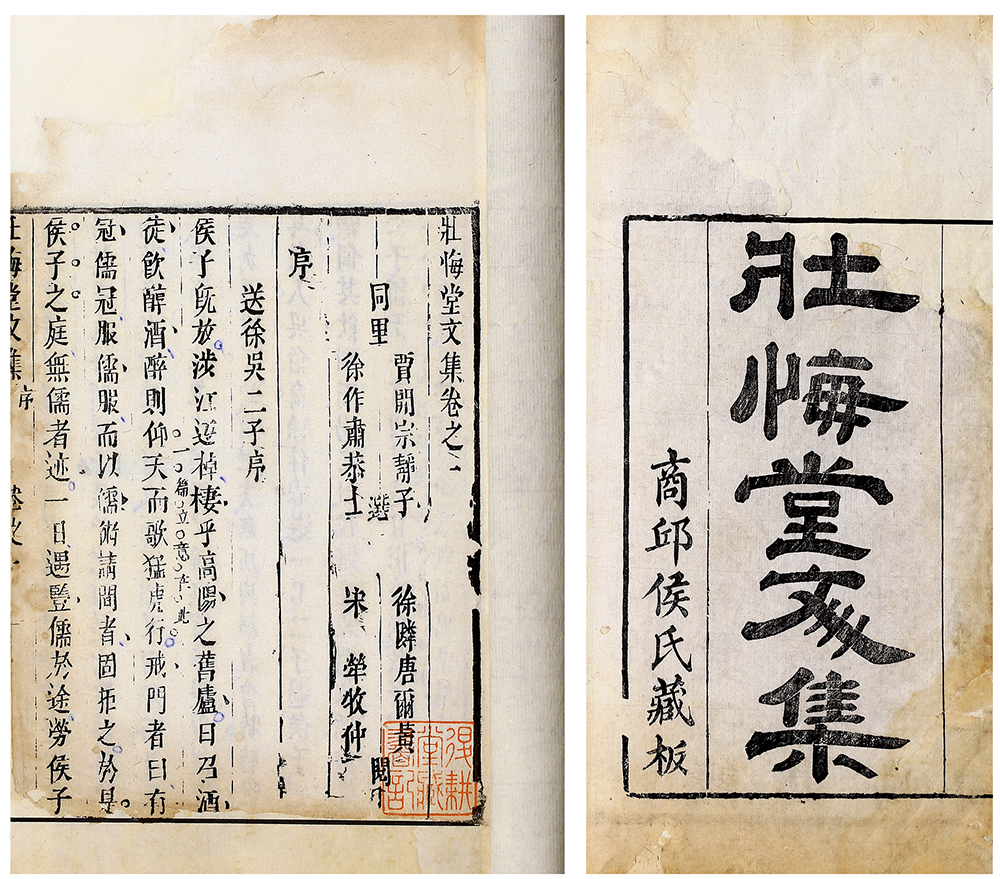 壯悔堂文集
商邱侯氏藏板
壯悔堂文集卷之一
賈開宗靜子 徐隣唐爾黃
同里 選 閱
徐作肅恭士 宋犖牧仲
序
送徐吳二子序
侯子旣放涉江返棹棲乎高陽之舊廬日召酒
徒飲醇酒醉則仰天而歌猛虎行戒門者曰有
一篇立意在此
冠儒冠服儒服而以儒術請間者固拒之於是
侯子之庭無儒者迹一日遇豎儒於途勞侯子
壯悔堂文集 序 卷之一
得耕堂藏書記